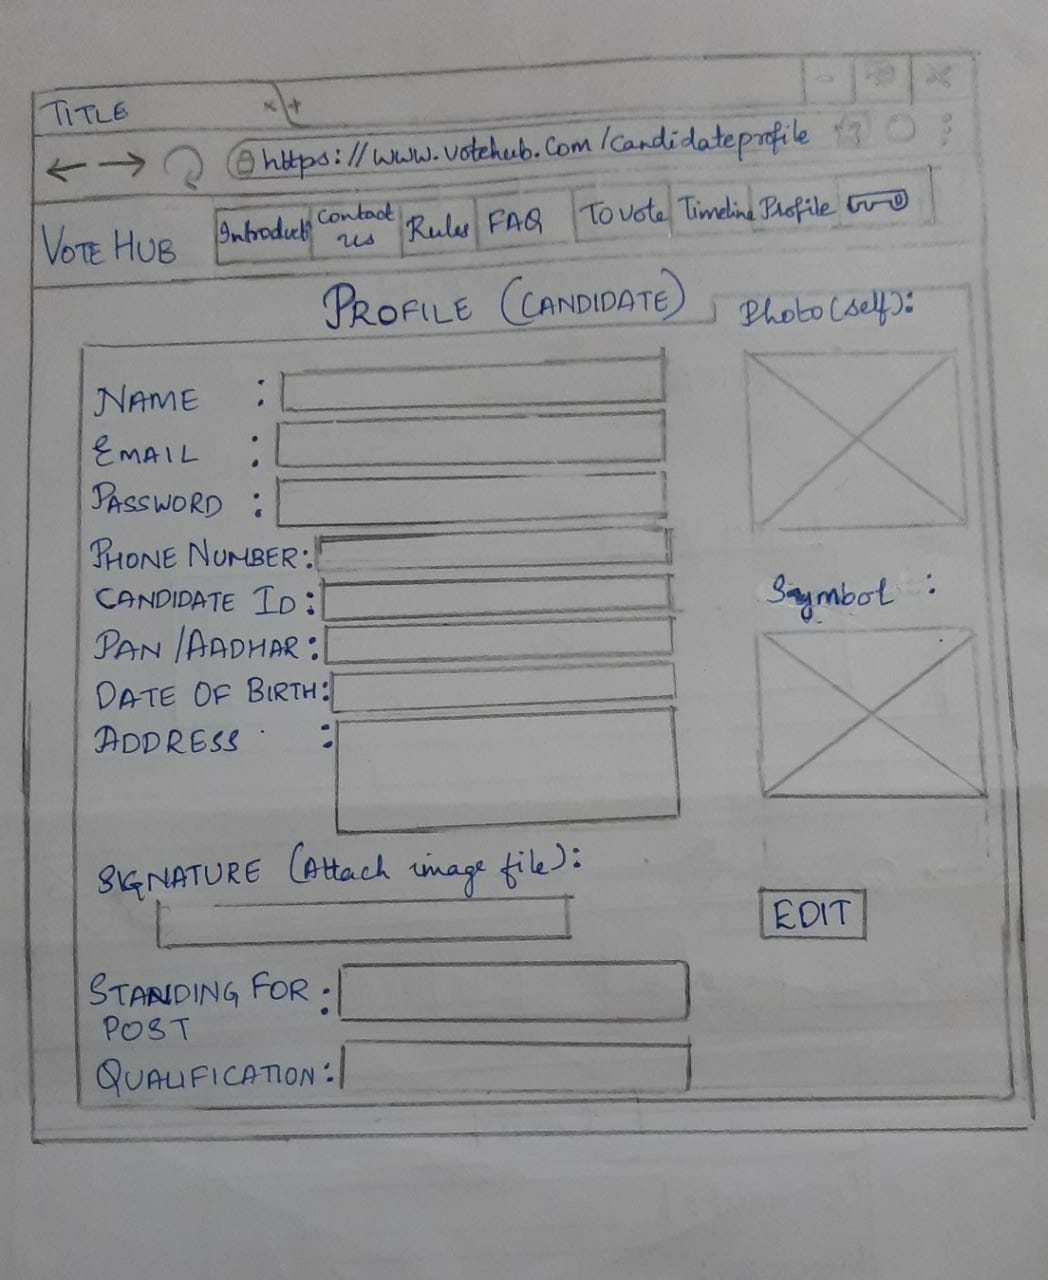 TITLE × +
https://www.votehub.com/candidateprofile
VOTE HUB Introducti Contact us Rules FAQ To vote Timeline Profile
PROFILE (CANDIDATE)
Photo (self):
NAME :
EMAIL :
PASSWORD :
PHONE NUMBER:
CANDIDATE ID:
PAN /AADHAR:
DATE OF BIRTH:
ADDRESS :
Symbol :
SIGNATURE (Attach image file):
EDIT
STANDING FOR :
POST
QUALIFICATION: